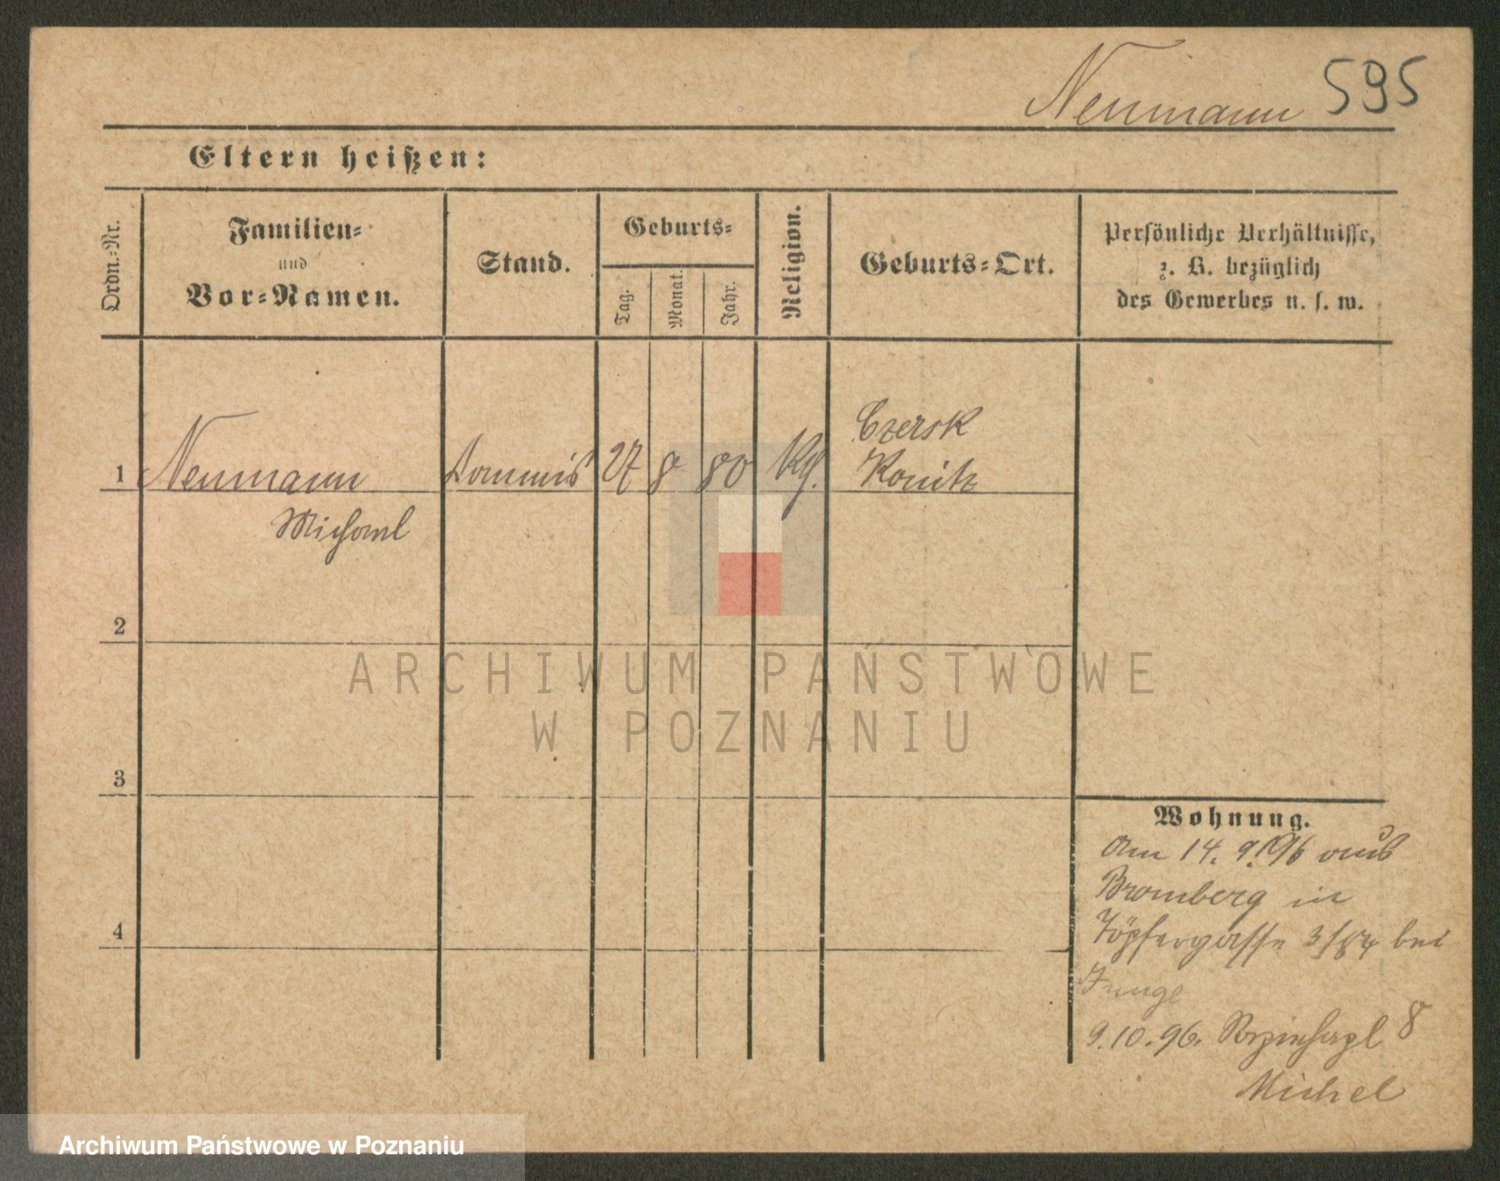 Neumann 595
Eltern heißen:
Ordn.-Nr.
Familien-
und
Vor-Namen.
Stand.
Geburts-
Tag.
Monat.
Jahr.
Religion.
Geburts-Ort.
Persönliche Verhältnisse,
z. B. bezüglich
des Gewerbes u. s. w.
Czersk
1 Neumann Kommis 27 8 80 Konitz
Michael
2
ARCHIWUM PAŃSTWOWE
W POZNANIU
3
Wohnung.
Am 14. 9. 96 aus
Bromberg in
Töpfergasse 3/84 bei
Junge
9.10.96. 8
Michel
4
Archiwum Państwowe w Poznaniu